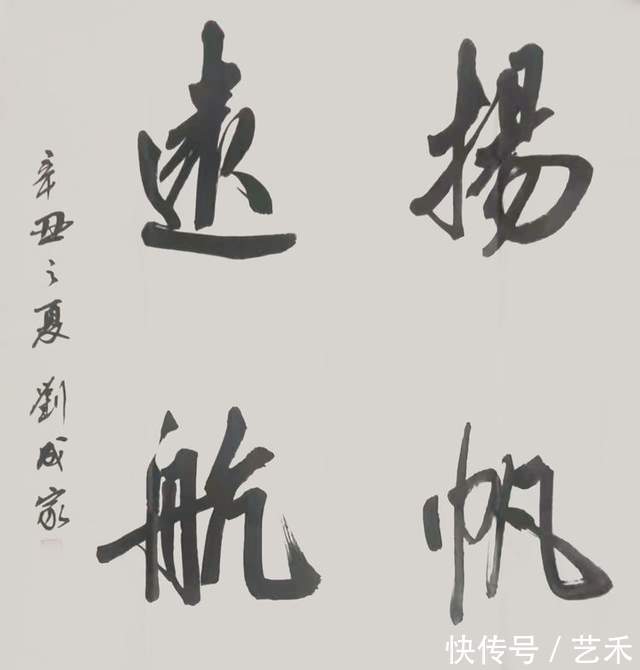 揚帆
遠航
辛丑之夏 劉成家
快传号 / 艺禾